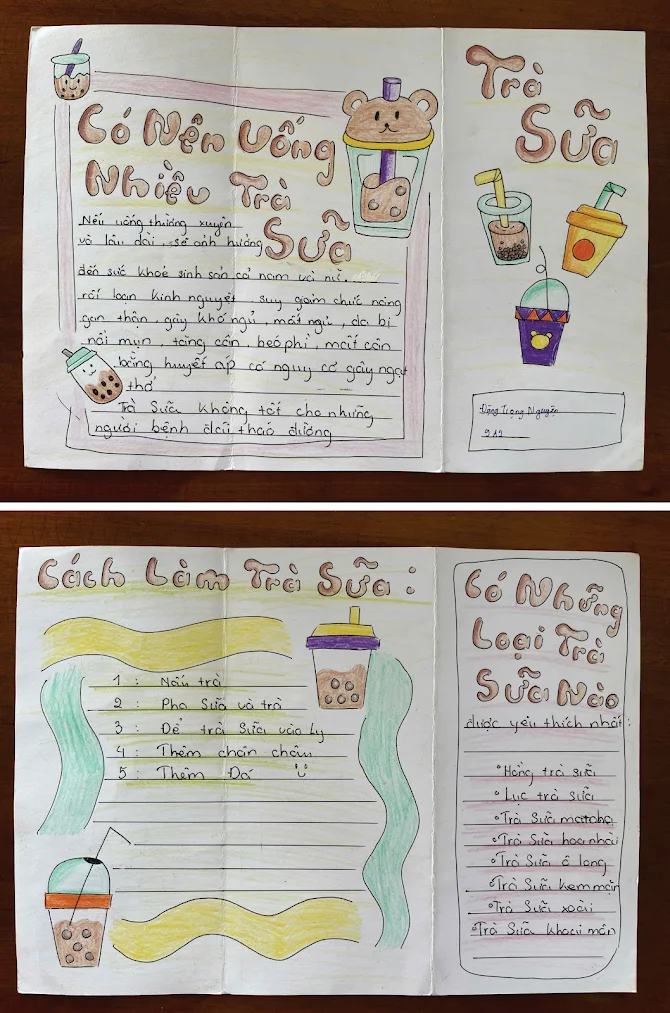 Có Nên Uống
Nhiều Trà
Sữa
Nếu uống thường xuyên
và lâu dài, sẽ ảnh hưởng
đến sức khoẻ sinh sản cả nam và nữ.
rối loạn kinh nguyệt, suy giảm chức năng
gan thận, gây khó ngủ, mất ngủ, da bị
nổi mụn, tăng cân, béo phì, mất cân
bằng huyết áp có nguy cơ gây ngạt
thở
Trà Sữa không tốt cho những
người bệnh đái tháo đường
Trà
Sữa
Đặng Trọng Nguyên
9A2
Cách Làm Trà Sữa :
1 : Nấu trà
2 : Pha Sữa và trà
3 : Để trà Sữa vào ly
4 : Thêm chân châu
5 : Thêm Đá
Có Những
Loại Trà
Sữa Nào
được yêu thích nhất :
Hồng trà sữa
Lục trà sữa
Trà Sữa matcha
Trà Sữa hoa nhài
Trà Sữa ô long
Trà Sữa kem mặn
Trà Sữa xoài
Trà Sữa khoai môn